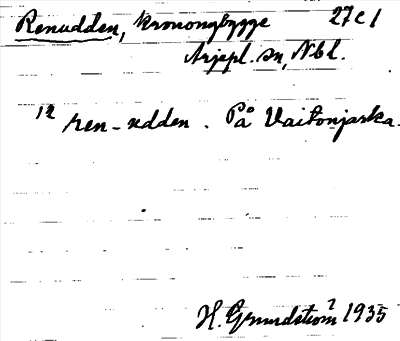 Renudden, kronomybygge 27c1
Arjepl. sn, Nbl.
12 ren-udden. På Vaitonjarka.
H. Grundström 1935